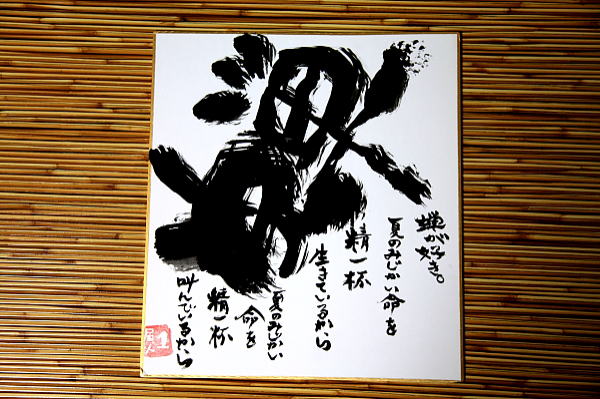 蟬が好き。
夏のみじかい命を
精一杯
生きているから
夏のみじかい
命を
精一杯
叫んでいるから